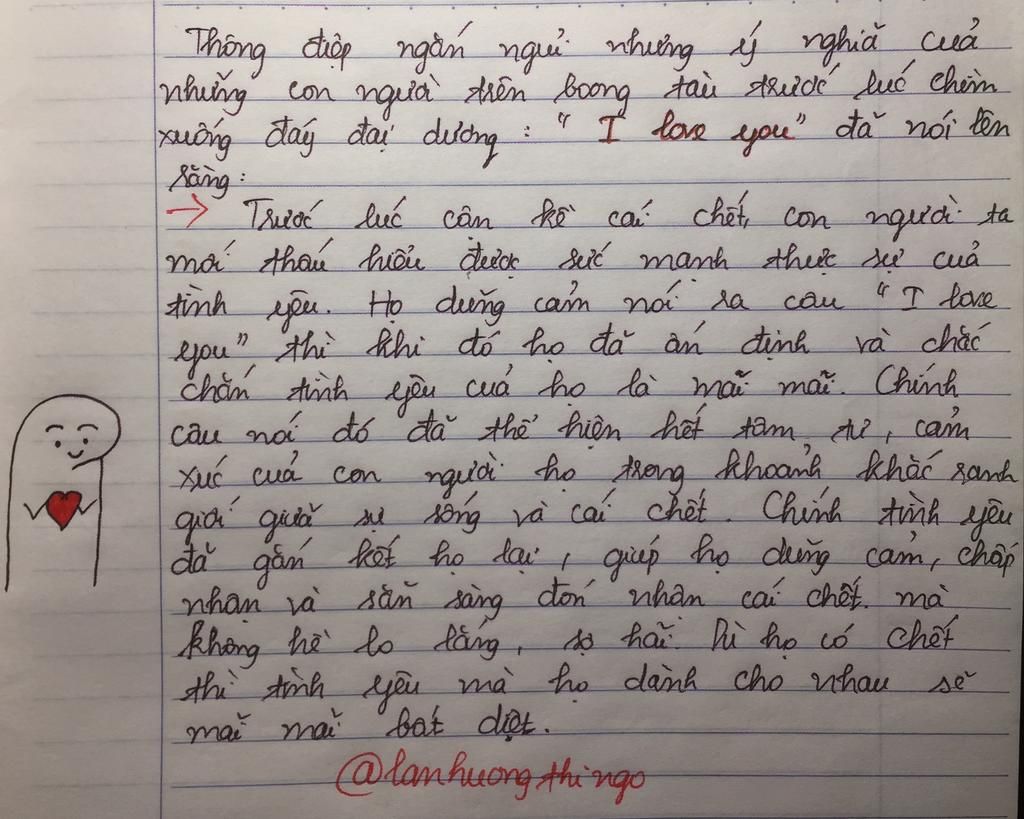 Thông điệp ngắn ngủi nhưng ý nghiã cuả
những con người trên boong taù trước luć chìm
xuống đaý đaị dương : " I love you" đã nói lên
rằng :
→ Trước luć cận kề caí chết, con người ta
mới thấu hiểu được sức mạnh thực sự cuả
tình yêu. Họ dũng cảm nói ra câu " I love
you" thì khi đó họ đã ấn định và chắc
chắn tình yêu cuả họ là maĩ maĩ. Chính
câu nói đó đã thể hiện hết tâm tư, cảm
xuć cuả con người họ trong khoảnh khắc ranh
giới giữa sự sống và caí chết. Chính tình yêu
đã gắn kết họ laị, giúp họ dũng cảm, chấp
nhận và sẵn sàng đón nhận caí chết mà
không hề lo lắng, sợ haĩ. Dù họ có chết
thì tình yêu mà họ dành cho nhau sẽ
maĩ maĩ bất diệt.
@lanhuongthingo